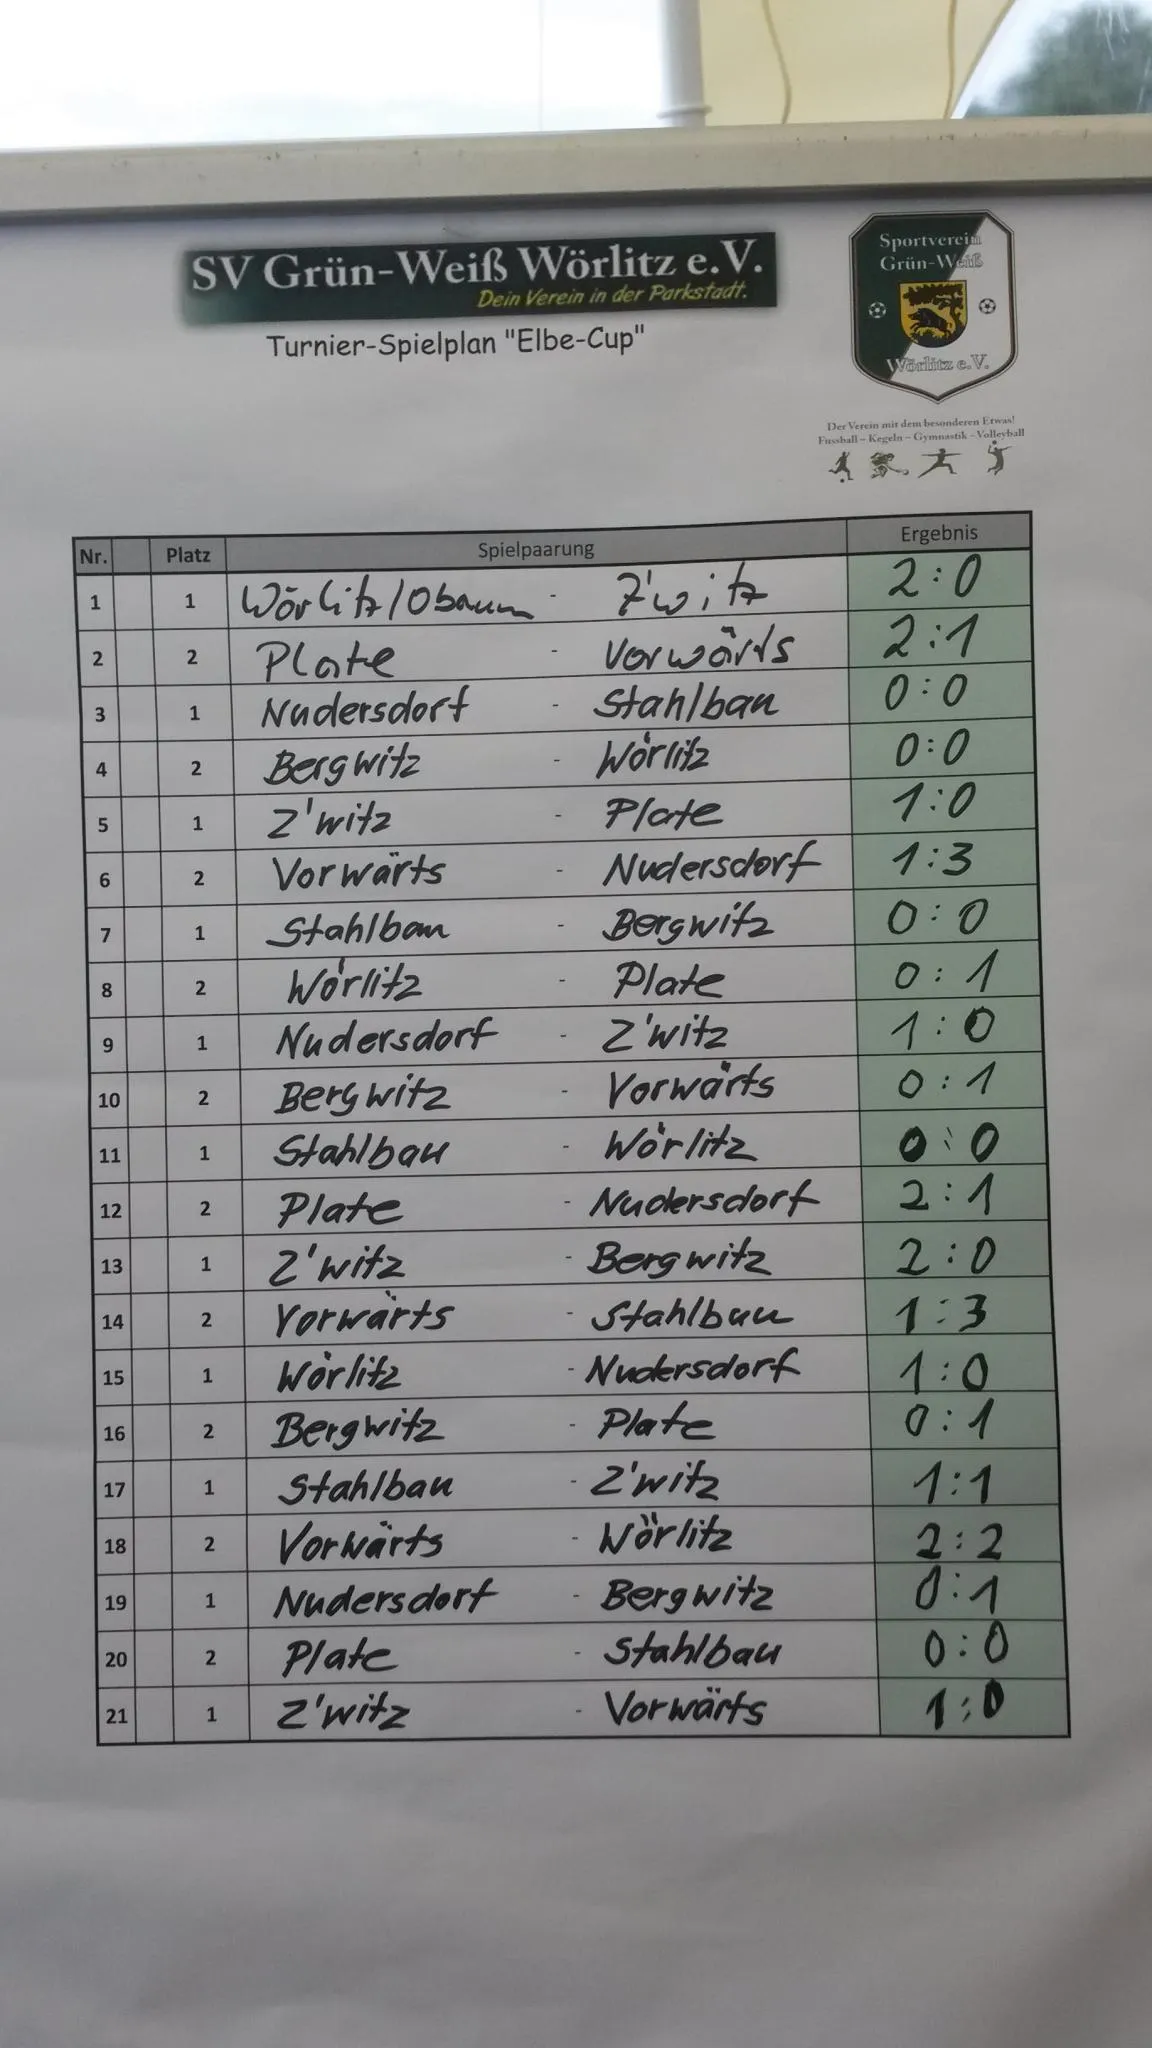 SV Grün-Weiß Wörlitz e.V.
Dein Verein in der Parkstadt.
Turnier-Spielplan "Elbe-Cup"
Sportverein
Grün-Weiß
Wörlitz e.V.
Der Verein mit dem besonderen Etwas!
Fussball – Kegeln – Gymnastik – Volleyball
Nr. Platz Spielpaarung Ergebnis
1 1 Wörlitz/Obaum - Z'witz 2:0
2 2 Plate - Vorwärts 2:1
3 1 Nudersdorf - Stahlbau 0:0
4 2 Bergwitz - Wörlitz 0:0
5 1 Z'witz - Plate 1:0
6 2 Vorwärts - Nudersdorf 1:3
7 1 Stahlbau - Bergwitz 0:0
8 2 Wörlitz - Plate 0:1
9 1 Nudersdorf - Z'witz 1:0
10 2 Bergwitz - Vorwärts 0:1
11 1 Stahlbau - Wörlitz 0:0
12 2 Plate - Nudersdorf 2:1
13 1 Z'witz - Bergwitz 2:0
14 2 Vorwärts - Stahlbau 1:3
15 1 Wörlitz - Nudersdorf 1:0
16 2 Bergwitz - Plate 0:1
17 1 Stahlbau - Z'witz 1:1
18 2 Vorwärts - Wörlitz 2:2
19 1 Nudersdorf - Bergwitz 0:1
20 2 Plate - Stahlbau 0:0
21 1 Z'witz - Vorwärts 1:0